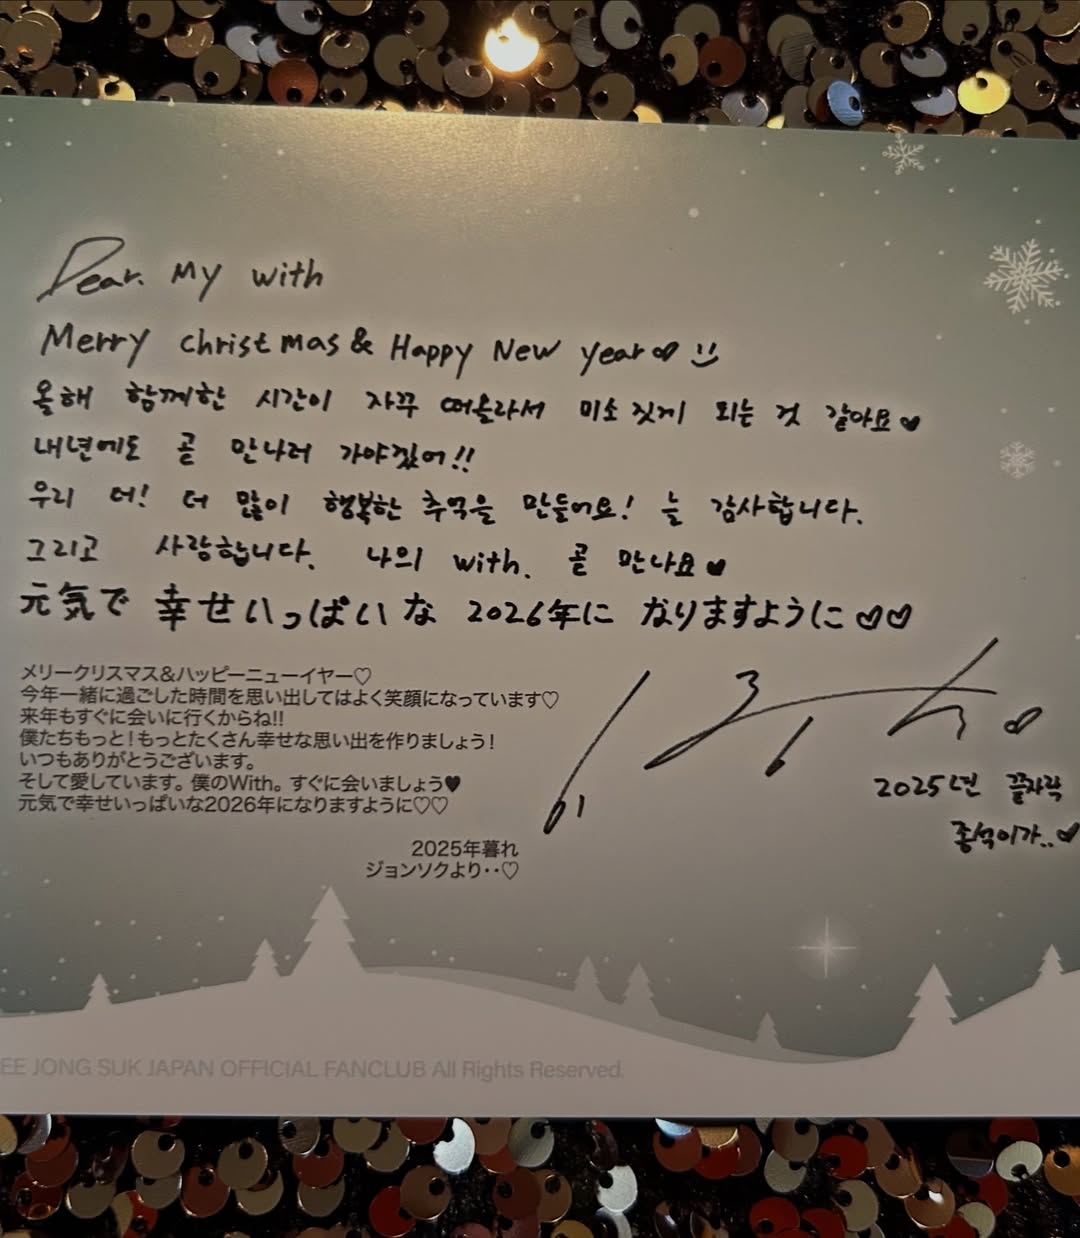 Dear. My with
Merry christmas & Happy New year♡ :)
올해 함께한 시간이 자꾸 떠올라서 미소 짓게 되는 것 같아요♥
내년에도 곧 만나러 가야겠어!!
우리 더! 더 많이 행복한 추억을 만들어요! 늘 감사합니다.
그리고 사랑합니다. 나의 with. 곧 만나요♥
元気で 幸せいっぱいな 2026年に なりますように♡♡
メリークリスマス&ハッピーニューイヤー♡
今年一緒に過ごした時間を思い出してはよく笑顔になっています♡
来年もすぐに会いに行くからね!!
僕たちもっと!もっとたくさん幸せな思い出を作りましょう!
いつもありがとうございます。
そして愛しています。僕のWith。すぐに会いましょう♥
元気で幸せいっぱいな2026年になりますように♡♡
2025年暮れ
ジョンソクより‥♡
2025년 끝자락
종석이가..♡
EE JONG SUK JAPAN OFFICIAL FANCLUB All Rights Reserved.